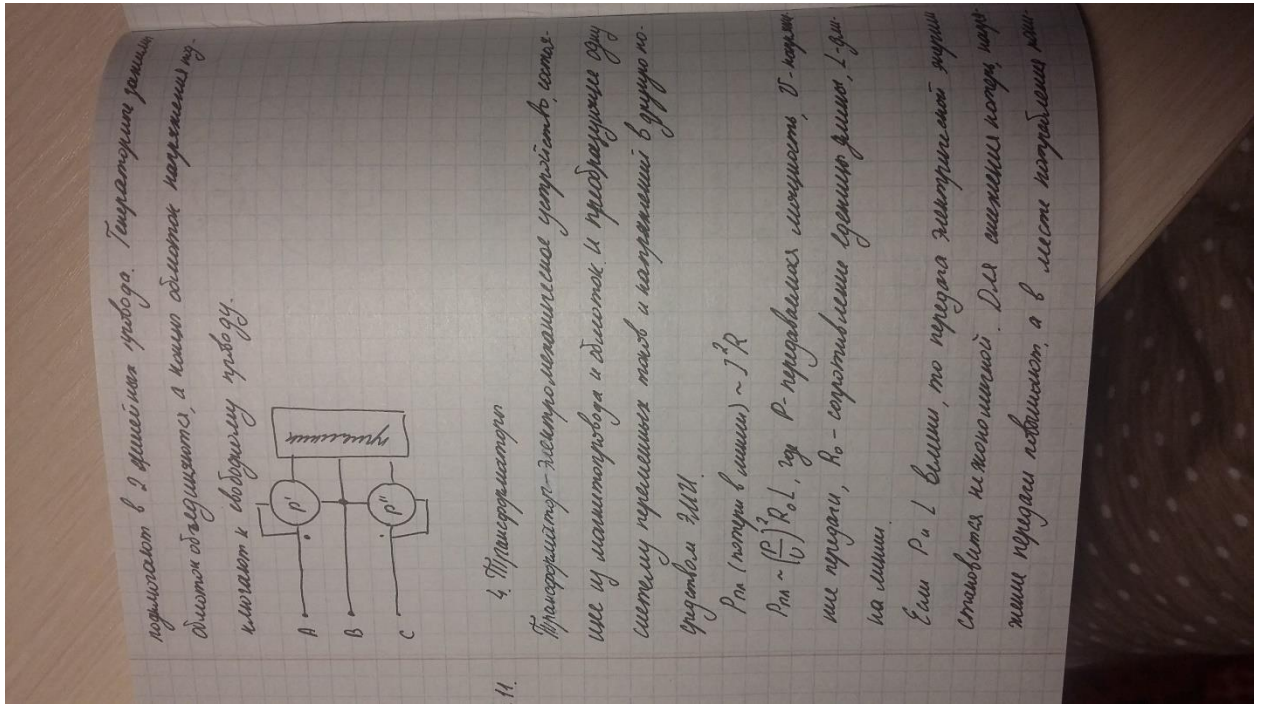 подключают в 2 линейных провода. Генераторные зажимы
обмоток объединяются, а концы обмоток напряжения под-
ключают к свободному проводу.
A
B
C
P'
P"
приемник
11.
4. Трансформаторы
Трансформатор-электромеханическое устройство, состоя-
щее из магнитопровода и обмоток и преобразующее одну
систему переменных токов и напряжений в другую по-
средством ЭМИ.
Pпл (потери в линии) ~ I²R
Pпл ~ (P/U)² R₀L, где P-передаваемая мощность, U-напряже-
ние передачи, R₀-сопротивление единицы длины, L-дли-
на линии.
Если P и L велики, то передача электрической энергии
становится неэкономичной. Для снижения потерь, напря-
жение передачи повышают, а в месте потребления пони-